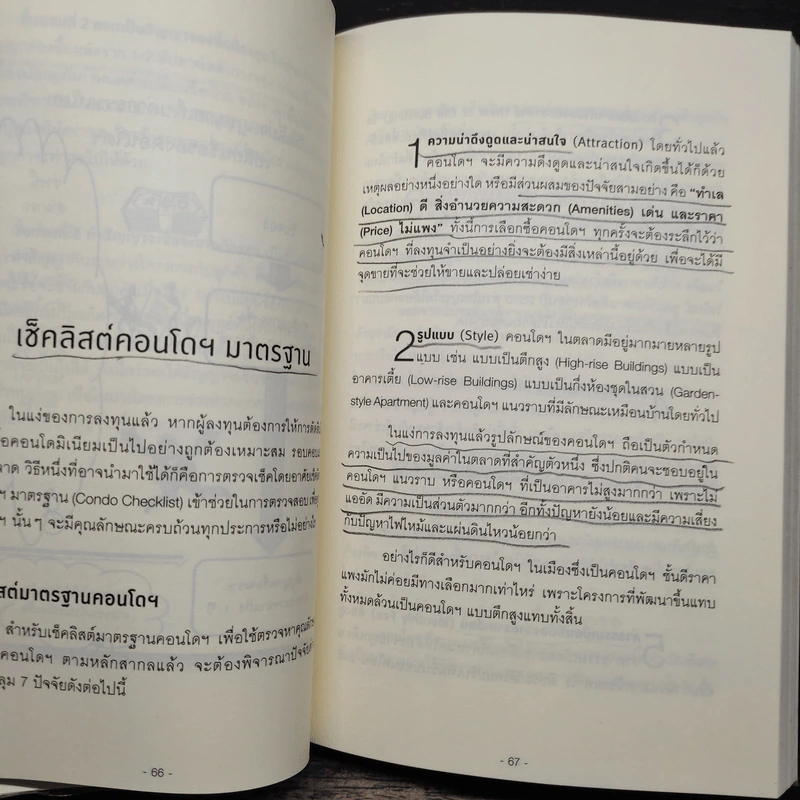 เช็คลิสต์คอนโดฯ มาตรฐาน
ในแง่ของการลงทุนแล้ว หากผู้ลงทุนต้องการให้การตัดสิน
อคอนโดมิเนียมเป็นไปอย่างถูกต้องเหมาะสม รอบคอบ
าด วิธีหนึ่งที่อาจนำมาใช้ได้ก็คือการตรวจเช็คโดยอาศัยเช็คลิ
ฯ มาตรฐาน (Condo Checklist) เข้าช่วยในการตรวจสอบเพื่อดู
ฯ นั้นๆ จะมีคุณลักษณะครบถ้วนทุกประการหรือไม่อย่างไร
สต์มาตรฐานคอนโดฯ
สำหรับเช็คลิสต์มาตรฐานคอนโดฯ เพื่อใช้ตรวจหาคุณ
คอนโดฯ ตามหลักสากลแล้ว จะต้องพิจารณาปัจจัย
ลุม 7 ปัจจัยดังต่อไปนี้
- 66 -
1 ความน่าดึงดูดและน่าสนใจ (Attraction) โดยทั่วไปแล้ว
คอนโดฯ จะมีความดึงดูดและน่าสนใจเกิดขึ้นได้ก็ด้วย
เหตุผลอย่างหนึ่งอย่างใด หรือมีส่วนผสมของปัจจัยสามอย่าง คือ "ทำเล
(Location) ดี สิ่งอำนวยความสะดวก (Amenities) เด่น และราคา
(Price) ไม่แพง" ทั้งนี้การเลือกซื้อคอนโดฯ ทุกครั้งจะต้องระลึกไว้ว่า
คอนโดฯ ที่ลงทุนจำเป็นอย่างยิ่งจะต้องมีสิ่งเหล่านี้อยู่ด้วย เพื่อจะได้มี
จุดขายที่จะช่วยให้ขายและปล่อยเช่าง่าย
2 รูปแบบ (Style) คอนโดฯ ในตลาดมีอยู่มากมายหลายรูป
แบบ เช่น แบบเป็นตึกสูง (High-rise Buildings) แบบเป็น
อาคารเตี้ย (Low-rise Buildings) แบบเป็นกึ่งห้องชุดในสวน (Garden-
style Apartment) และคอนโดฯ แนวราบที่มีลักษณะเหมือนบ้านโดยทั่วไป
ในแง่การลงทุนแล้วรูปลักษณ์ของคอนโดฯ ถือเป็นตัวกำหนด
ความเป็นไปของมูลค่าในตลาดที่สำคัญตัวหนึ่ง ซึ่งปกติคนจะชอบอยู่ใน
คอนโดฯ แนวราบ หรือคอนโดฯ ที่เป็นอาคารไม่สูงมากกว่า เพราะไม่
แออัด มีความเป็นส่วนตัวมากกว่า อีกทั้งปัญหายังน้อยและมีความเสี่ยง
กับปัญหาไฟไหม้และแผ่นดินไหวน้อยกว่า
อย่างไรก็ดีสำหรับคอนโดฯ ในเมืองซึ่งเป็นคอนโดฯ ชั้นดีราคา
แพงมักไม่ค่อยมีทางเลือกมากเท่าไหร่ เพราะโครงการที่พัฒนาขึ้นแทบ
ทั้งหมดล้วนเป็นคอนโดฯ แบบตึกสูงแทบทั้งสิ้น
- 67 -